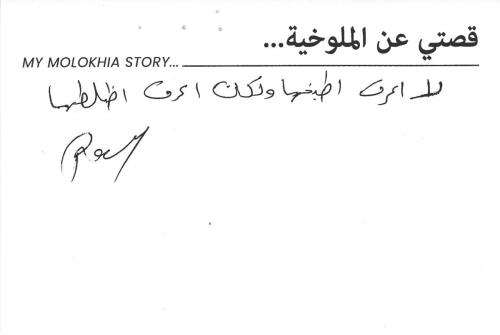 قصتي عن الملوخية...
MY MOLOKHIA STORY...
لا اعرف اطبخها ولكن اعرف اظلطها